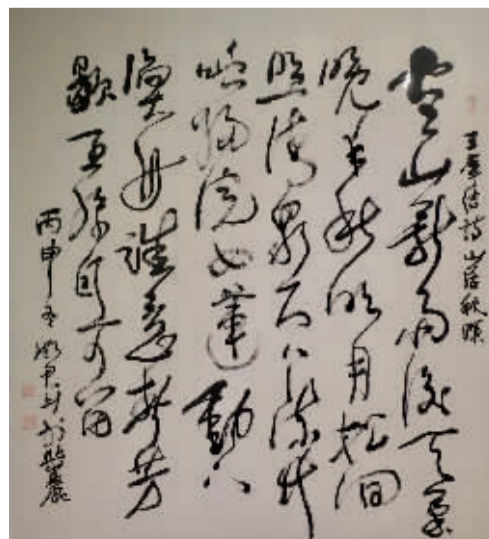 王摩詰詩山居秋暝
空山新雨後天氣
晚來秋明月松間
照清泉石上流竹
喧歸浣女蓮動下
漁舟隨意春芳
歇王孫自可留
丙申冬